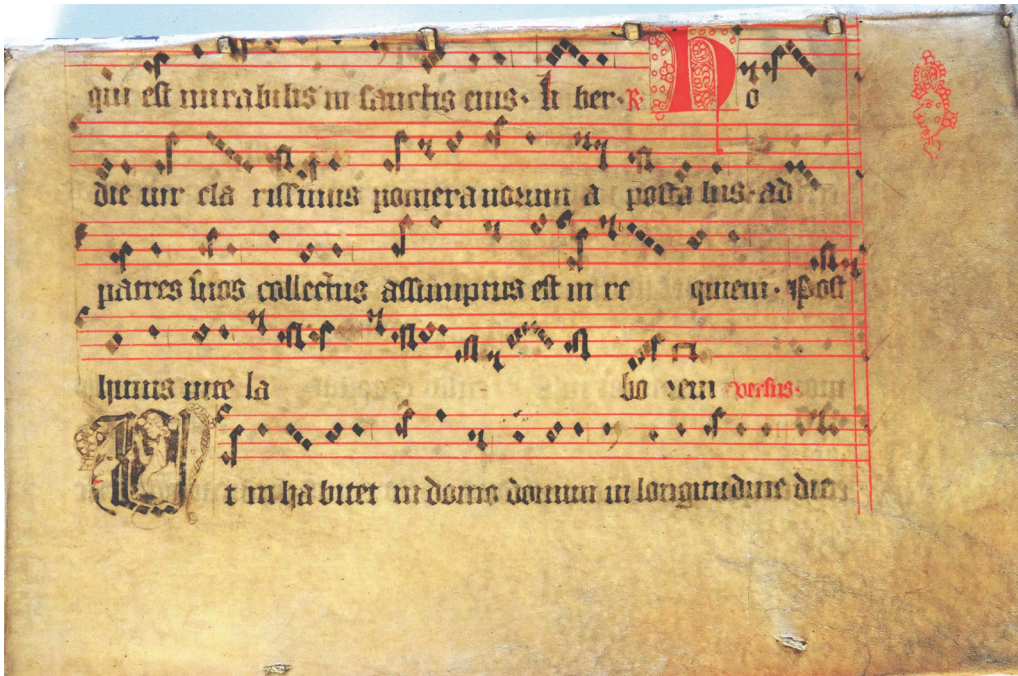 qui est mirabilis in sanctis eius· li ber· R H o
die uir cla rissimus pomera norum a posto lus· ad
patres suos collectus assumptus est in re quiem· Post
huius uite la bo rem versus·
U t in ha bitet in domo domini in longitudine die